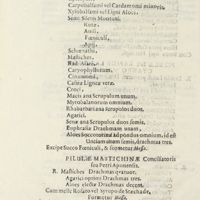 Carpobalsami vel Cardamomi minoris,
Xylobalsami vel Ligni Aloes,
Semi: Sileris Montani,
Rutæ,
Anisi,
Fœniculi,
Apij,
Schœnathi,
Mastiches,
Nardi
Caryophyllorum,
Cinamomi,
Casiæ Ligneæ veræ,
Croci,
Macis ana Scrupulum unum,
Myrobalanorum omnium,
Rhabarbari ana scrupulos duos,
Agarici,
Senæ ana Scrupulos semis,
Euphrasiæ Drachmam unam,
Aloes Succotrinæ ad pondus omnium, id est
Unciam unam semis, drachmas tres.
Excipe Succo Fœniculi, & formetur Massa.
PILULÆ MASTICHINÆ Conciliatoris
seu Petri Aponensis.
R. Mastiches Drachmas quatuor,
Agarici optimi Drachmas tres,
Aloes electæ Drachmas decem,
Cum melle Rosato vel syrupo de Stœchade,
Formetur Massa.